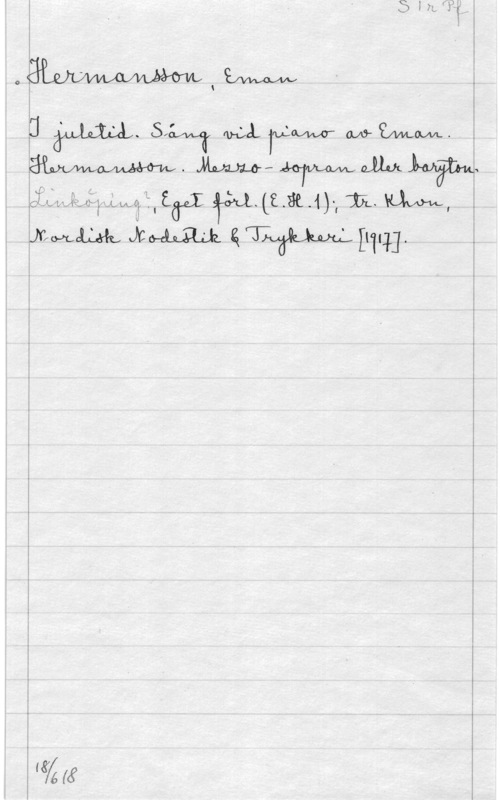 S 1 r Pf
Hermansson, Eman
I juletid. Sång vid piano av Eman.
Hermansson. Mezzo-sopran eller baryton.
Linköping?, Eget förl. (E.H.1); tr. Khvn,
Nordisk Nodestik & Trykkeri [1917].
18/6 18